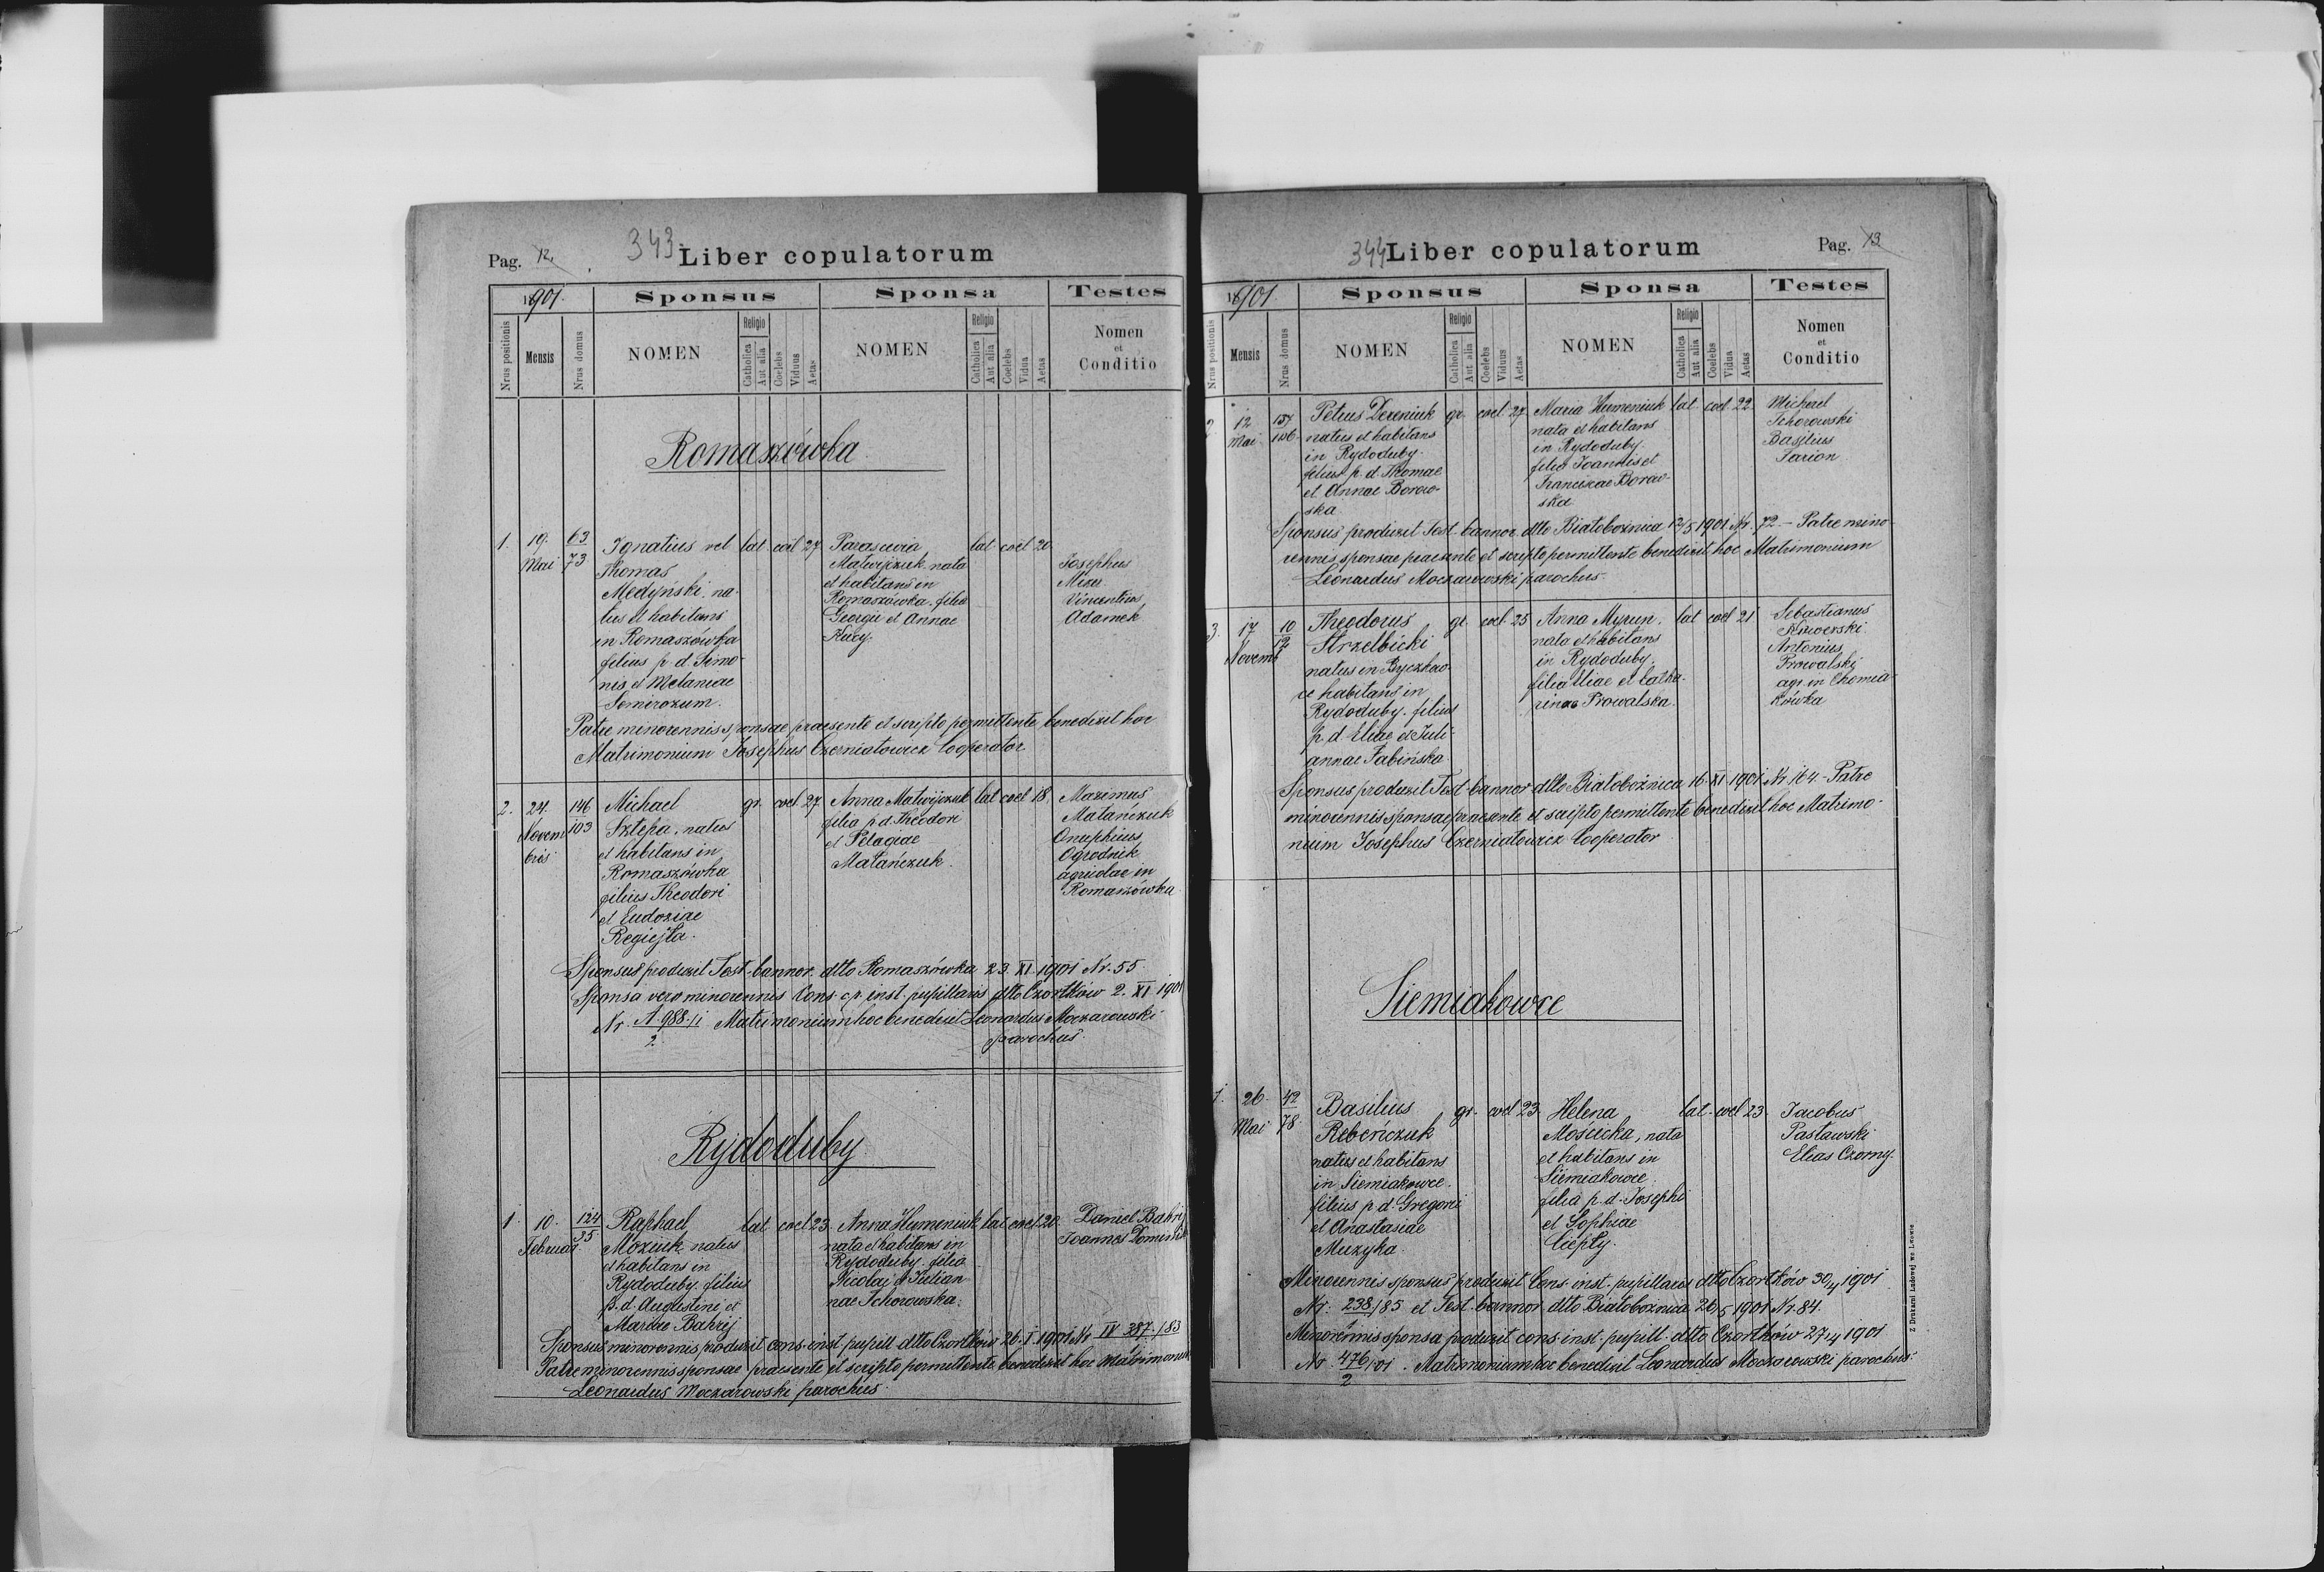 Pag. 12.
343
Liber copulatorum
1901.
Sponsus
Sponsa
Testes
Nrus positionis
Mensis
Nrus domus
NOMEN
Religio
Catholica
Aut alia
Coelebs
Viduus
Aetas
NOMEN
Religio
Catholica
Aut alia
Coelebs
Vidua
Aetas
Nomen
et
Conditio
Romaszówka
1. 19. Mai 63/73
Ignatius vel
Thomas
Medyński, na-
tus et habitans
in Romaszówka
filius p. d. Simo-
nis et Melaniae
Semirozum.
lat. coel. 27
Parascevia
Matwijczuk nata
et habitans in
Romaszówka. filia
Georgii et Annae
Kucy.
lat. coel. 20
Josephus
Mizu
Vincentius
Adamek
Patre minorennis sponsae praesente et scripto permittente benedixit hoc
Matrimonium Josephus Czerniatowicz Cooperator
2. 24. Novembris 146/103
Michael
Sztepa, natus
et habitans in
Romaszówka
filius Theodori
et Eudoxiae
Regiejta.
gr. coel. 27
Anna Matwijczuk
filia p. d. Theodori
et Pelagiae
Matańczuk.
lat. coel. 18
Maximus
Matańczuk
Onuphrius
Ogrodnik
agricolae in
Romaszówka
Sponsus produxit Test. bannor. dtto Romaszówka 23. XI. 1901 Nr. 55.
Sponsa vero minorennis Cons. inst. pupillaris dtto Czortków 2. XI 1901
Nr. A 988/1 2 Matrimonium hoc benedixit Leonardus Moczarowski
parochus.
Rydoduby
1. 10. Februar 124/35
Raphael
Mozuk natus
et habitans in
Rydoduby. filius
p. d. Augustini et
Mariae Bahrij
lat. coel. 23.
Anna Humeniuk
nata et habitans in
Rydoduby. filia
Nicolai et Julian-
nae Tchorowska.
lat. coel. 20.
Daniel Bahrij
Joannes
Sponsus minorennis produxit cons. inst. pupill. dtto Czortków 26. I. 1901 Nr. IV 387./83
Patre minorennis sponsae praesente et scripto permittente benedixit hoc Matrimonium
Leonardus Moczarowski parochus.
344
Liber copulatorum
Pag. 13
1901.
Sponsus
Sponsa
Testes
Nrus positionis
Mensis
Nrus domus
NOMEN
Religio
Catholica
Aut alia
Coelebs
Viduus
Aetas
NOMEN
Religio
Catholica
Aut alia
Coelebs
Vidua
Aetas
Nomen
et
Conditio
2. 12 Mai 157/156
Petrus Dereniuk
natus et habitans
in Rydoduby.
filius p. d. Thomae
et Annae Borow-
ska
gr. coel. 27.
Maria Humeniuk
nata et habitans
in Rydoduby.
filia Joannis et
Franciscae Borow-
ska
lat. coel. 22.
Michael
Tchorowski
Basilius
Sarion
Sponsus produxit Test. bannor. dtto Białobożnica 12/5 1901 Nr. 72. — Patre mino-
rennis sponsae praesente et scripto permittente benedixit hoc Matrimonium
Leonardus Moczarowski parochus.
3. 17 Novemb 10/12
Theodorus
Strzelbicki
natus in Byczkow-
ce habitans in
Rydoduby. filius
p. d. Eliae et Juli-
annae Fabińska
gr. coel. 25
Anna Myrun.
nata et habitans
in Rydoduby,
filia Eliae et Catha-
rinae Prowalska.
lat. coel 21
Sebastianus
Antonius
Prowalski
agr. in Chomia-
kówka
Sponsus produxit Test. bannor dtto Białobożnica 16. XI 1901 Nr. 164. - Patre
minorennis sponsae praesente et scripto permittente benedixit hoc Matrimo-
nium Josephus Czerniatowicz Cooperator
Siemiakowce
1. 26. Mai 42/78
Basilius
Rebeńczuk
natus et habitans
in Siemiakowce.
filius p. d. Gregorii
et Anastasiae
Muzyka.
gr. coel. 23.
Helena
Mościcka, nata
et habitans in
Siemiakowce.
filia p. d. Josephi
et Sophiae
Ciepły.
lat. coel 23.
Jacobus
Pasławski
Elias Czorny.
Minorennis sponsus produxit Cons. inst. pupillaris dtto Czortków 30/4 1901
Nr. 238/85 et Test. bannor. dtto Białobożnica 26/5 1901 Nr. 84.
Minorennis sponsa produxit cons. inst. pupill. dtto Czortków 27/4 1901
Nr. 476/01 2. Matrimonium hoc benedixit Leonardus Moczarowski parochus.
Z Drukarni Ludowej we Lwowie